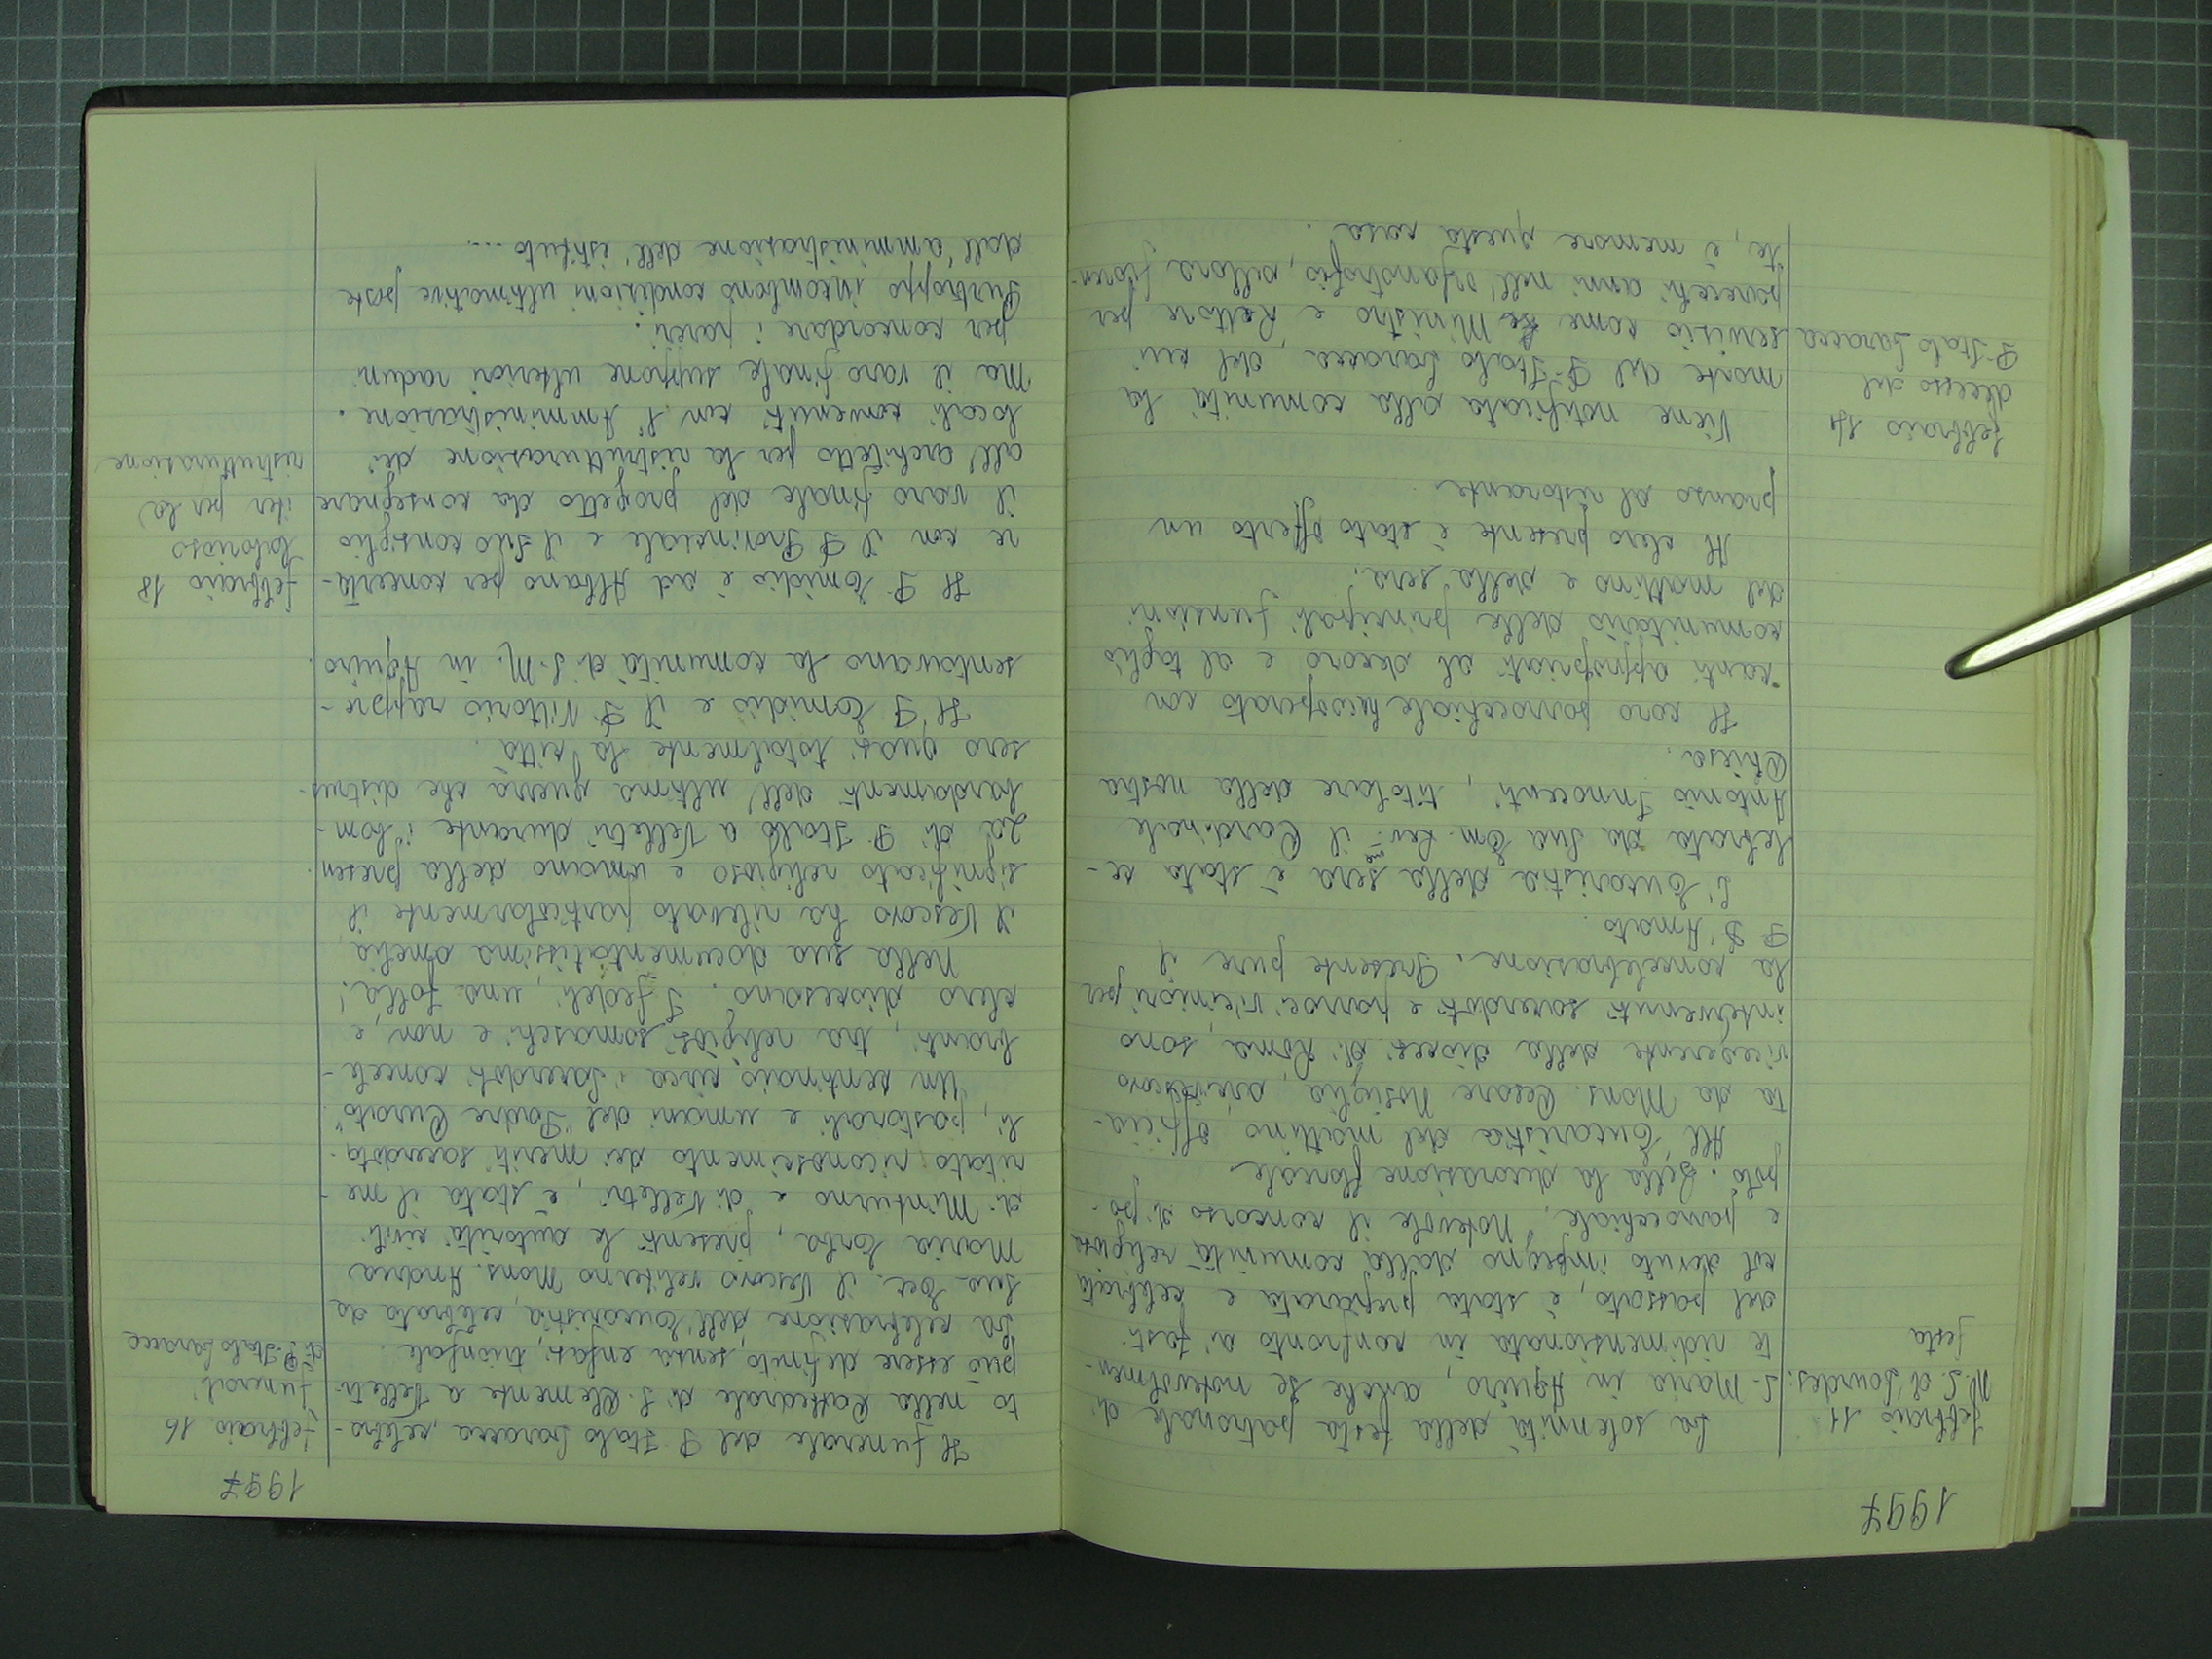 1997
febbraio 11
N. S. di Lourdes:
festa
La solennità della festa patronale di
S. Maria in Aquiro, anche se notevolmen-
te ridimensionata in confronto ai fasti
del passato, è stata preparata e celebrata
col dovuto impegno dalla comunità religiosa
e parrocchiale. Notevole il concorso di po-
polo. Bella la decorazione floreale
All'Eucaristia del mattino officia-
ta da Mons. Cesare Nosiglia, arcivescovo
vicegerente della diocesi di Roma, sono
intervenuti sacerdoti e parroci viciniori per
la concelebrazione. Presente pure il
P. D'Amato.
L'Eucaristia della sera è stata ce-
lebrata da Sua Em. Rev.me il Cardinale
Antonio Innocenti, titolare della nostra
Chiesa.
Il coro parrocchiale ha cooperato con
canti appropriati al decoro e al taglio
comunitario delle principali funzioni
del mattino e della sera.
Al clero presente è stato offerto un
pranzo al ristorante
febbraio 14
decesso del
P. Italo Laracca
Viene notificata alla comunità la
morte del P. Italo Laracca, del cui
servizio come Ministro e Rettore per
parecchi anni nell'orfanotrofio, allora fioren-
te, è memore questa casa.
1997
febbraio 16
funerali
di P. Italo Laracca
Il funerale del P. Italo Laracca, celebra-
to nella Cattedrale di S. Clemente a Velletri
può essere definito, senza enfasi, trionfale.
La celebrazione dell'Eucaristia, celebrata da
Sua Ecc. il Vescovo veliterno Mons. Andrea
Maria Erba, presenti le autorità civili
di Minturno e di Velletri, è stata il me-
ritato riconoscimento dei meriti sacerdota-
li, pastorali e umani del "Padre Curato".
Un centinaio circa i Sacerdoti concele-
branti, tra religiosi somaschi e non, e
clero diocesano. I fedeli, una folla!
Nella sua documentatissima omelia
il Vescovo ha rilevato particolarmente il
significato religioso e umano della presen-
za di P. Italo a Velletri durante i bom-
bardamenti dell'ultima guerra che distrus-
sero quasi totalmente la città.
Il P. Emidio e il P. Vittorio rappre-
sentavano la comunità di S. M. in Aquiro.
febbraio 18
laborioso
iter per la
ristrutturazione
Il P. Emidio è ad Albano per concerta-
re con il P. Provinciale e il Suo consiglio
il varo finale del progetto da consegnare
all'architetto per la ristrutturazione dei
locali convenuti con l'Amministrazione.
Ma il varo finale suppone ulteriori raduni
per concordare i pareri.
Purtroppo incombono condizioni ultimative poste
dall'amministrazione dell'istituto ...